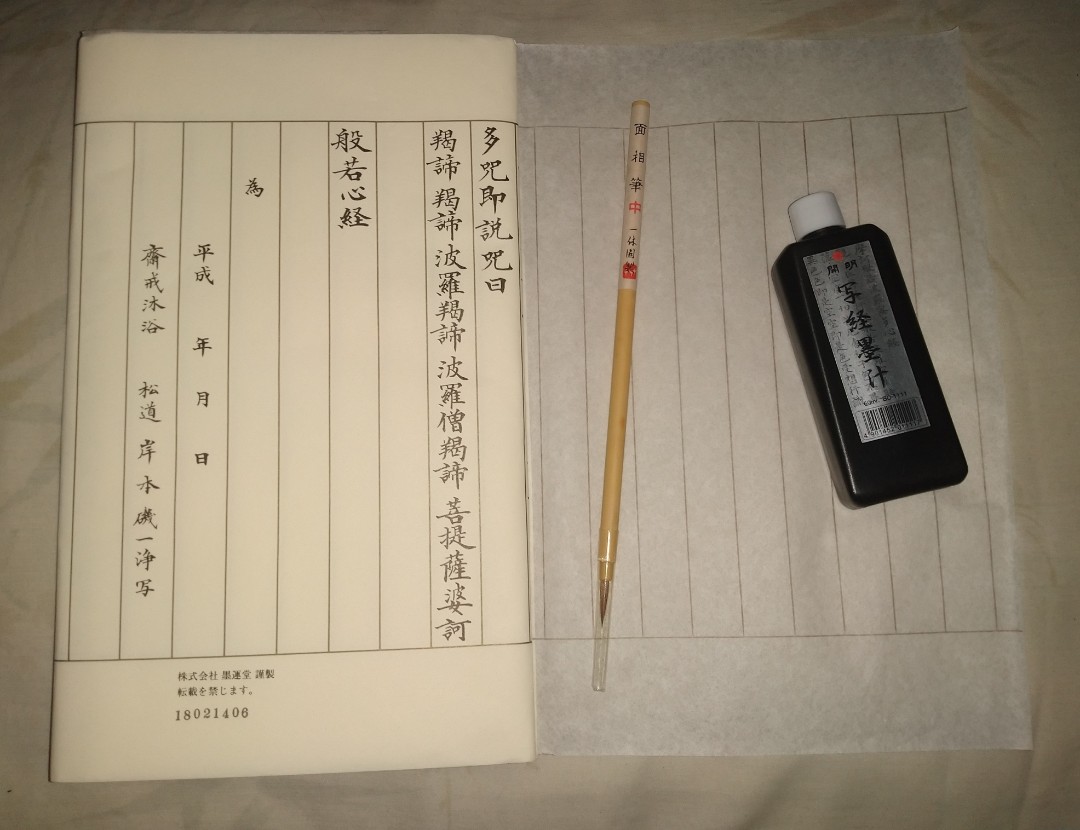 多呪即説呪曰
羯諦羯諦波羅羯諦波羅僧羯諦菩提薩婆訶
般若心経
為
平成 年 月 日
齋戒沐浴 松道 岸本磯一浄写
株式会社 墨運堂 謹製
転載を禁じます。
18021406
面相筆 中 一休園
開明
写経墨汁